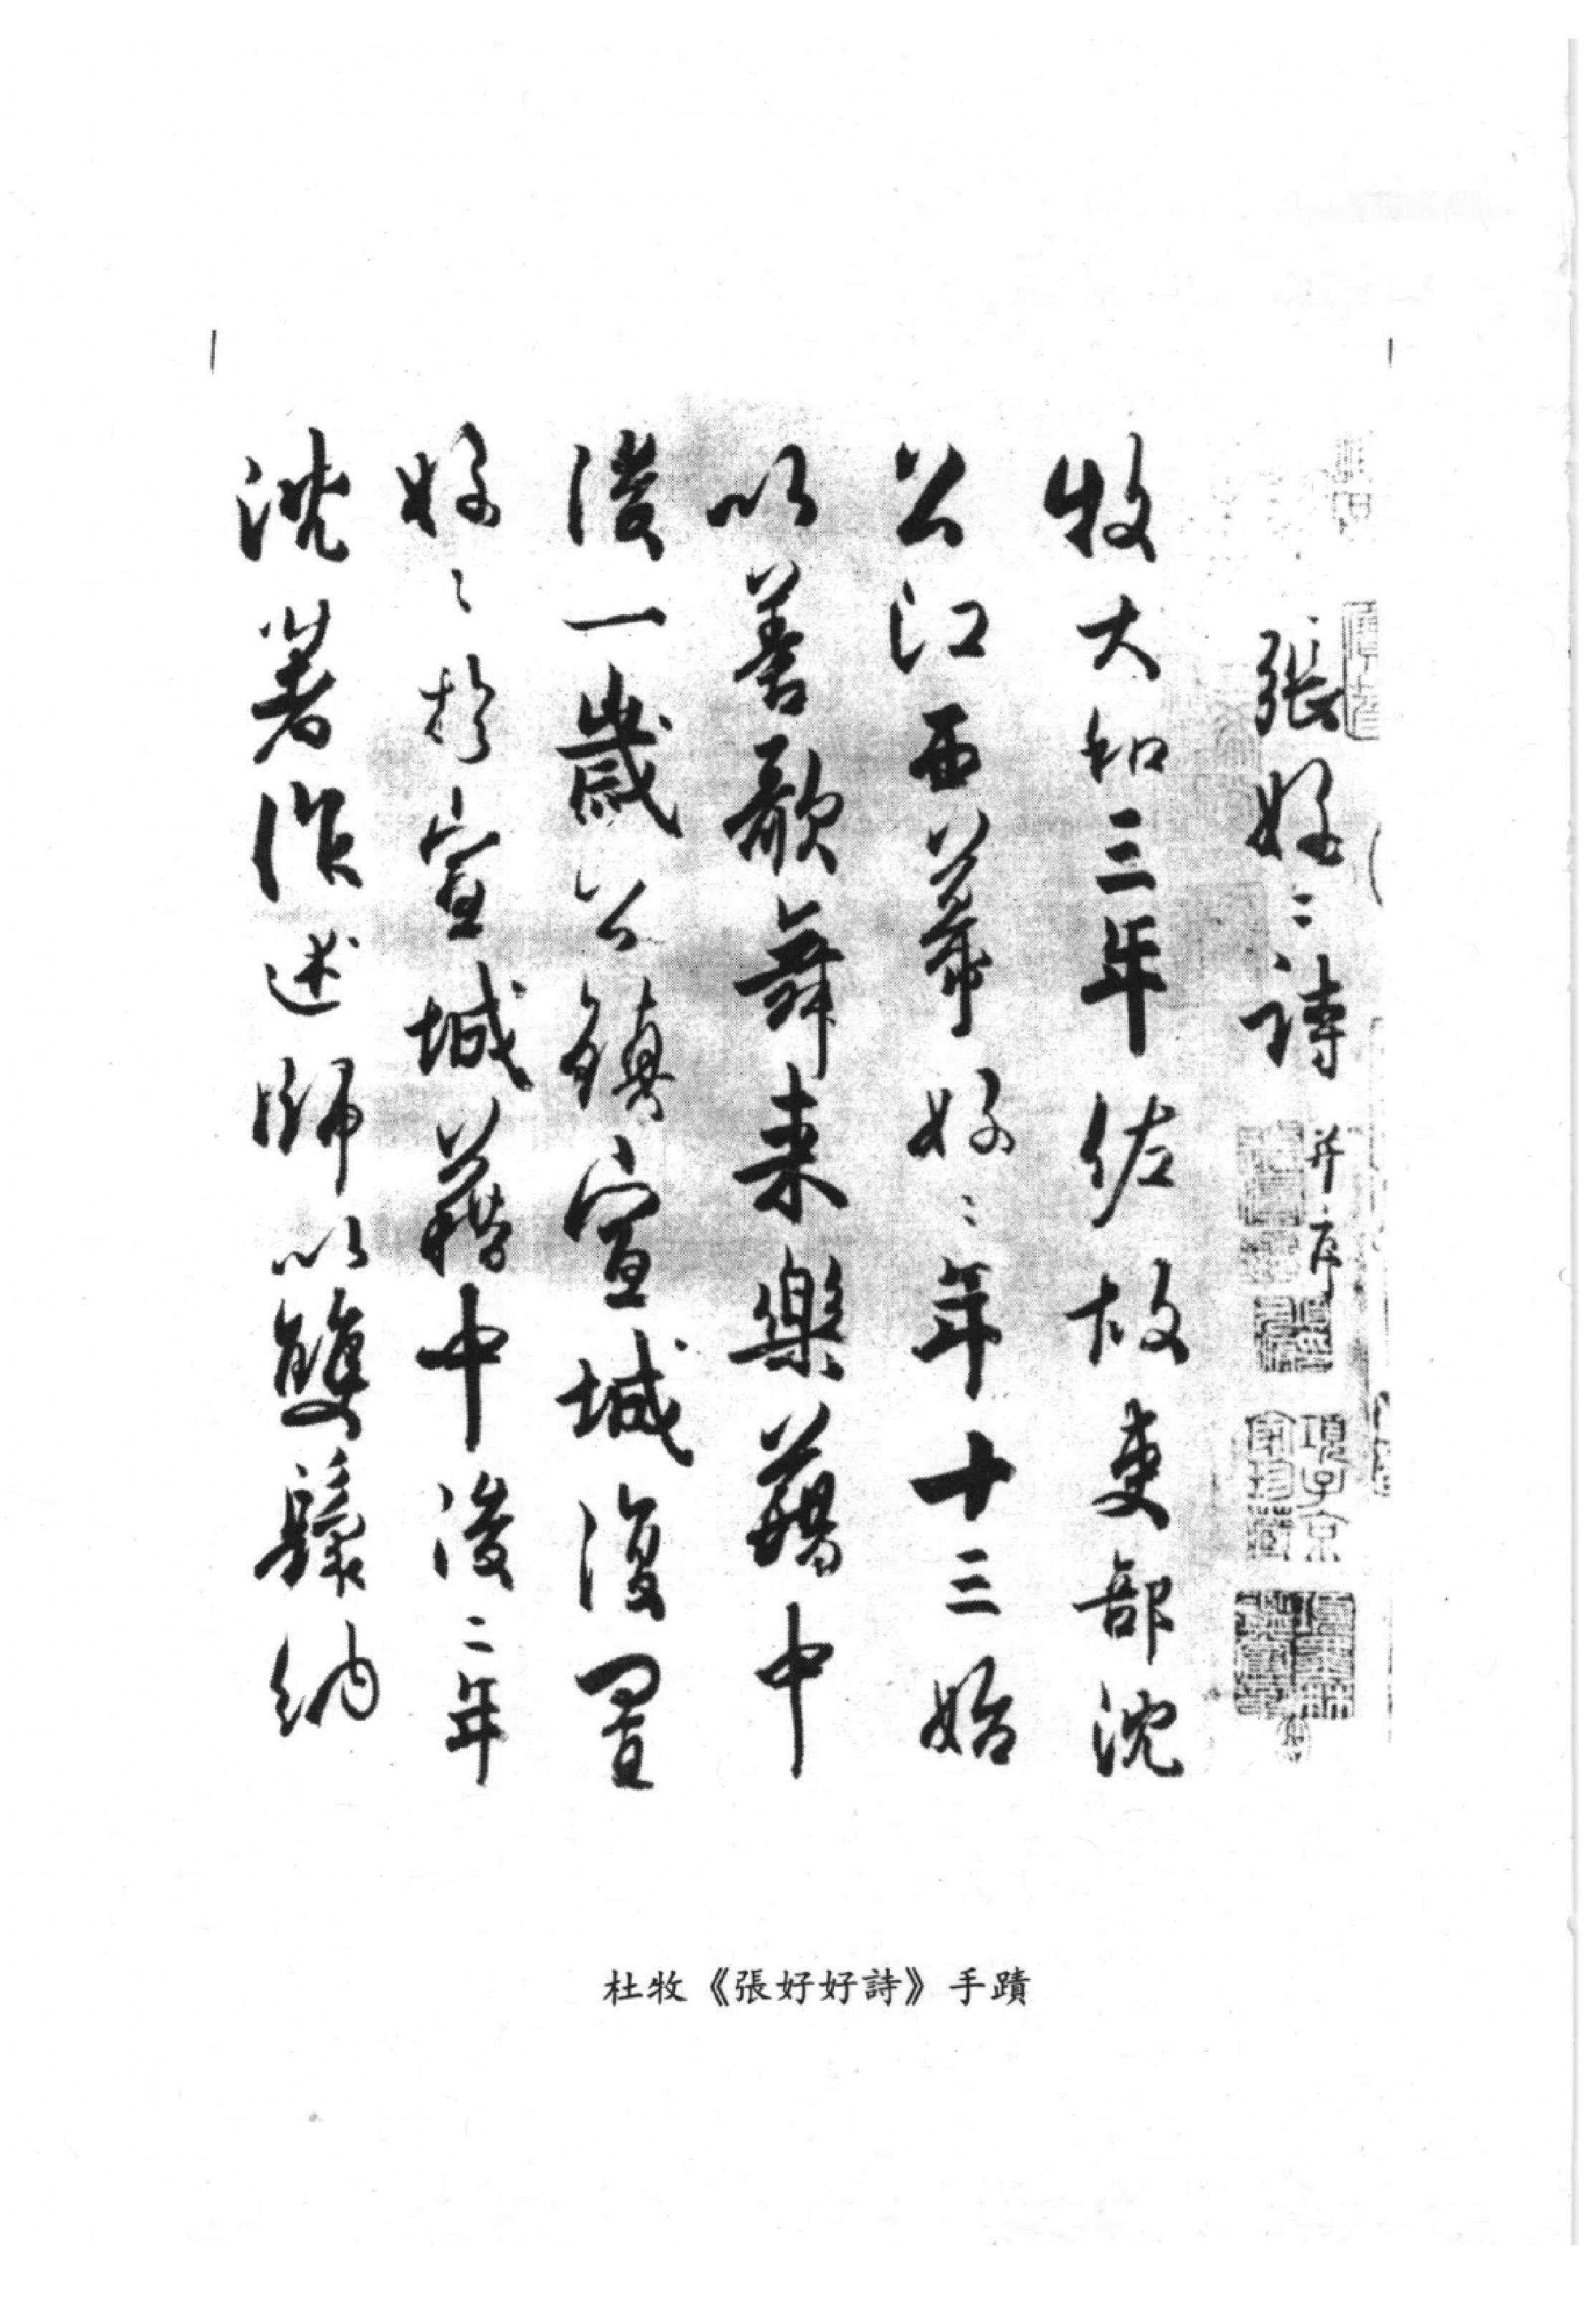 張好〻詩并序
牧大和三年佐故吏部沈
公江西幕好〻年十三始
以善歌舞来樂籍中
後一歲公鎮宣城復置
好〻於宣城籍中後二年
沈著作述師以雙鬟納
項子京
家珍藏
杜牧《張好好詩》手蹟